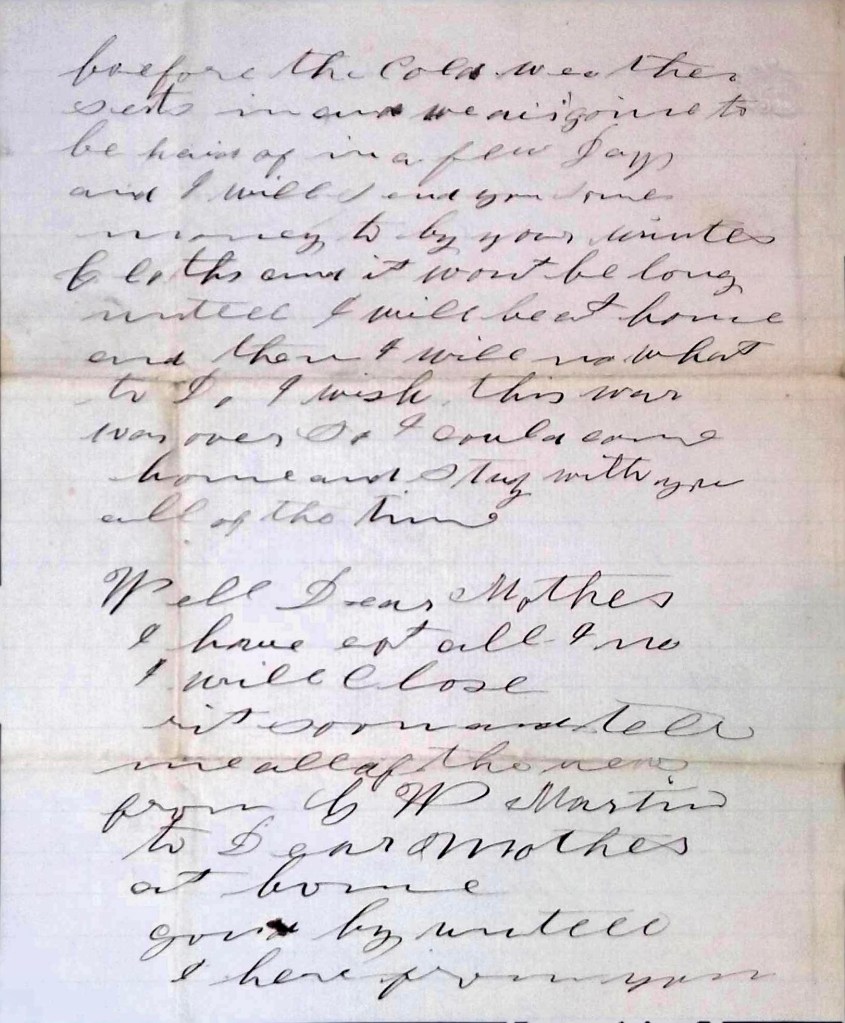 boefore the Cold weather
sets in and we air goine to
be paid of in a few Days
and I will Send you some
money to by your winter
Cloths and it wont be long
untell I will be at home
and then I will no what
to Do I wish this war
was over So I could come
home and stay with you
all of the time
Well Dear Mother
I have rot all I no
I will Close
rit soon and tell
me all of the news
from C W Martin
to Dear Mother
at home
good by untell
I here from you